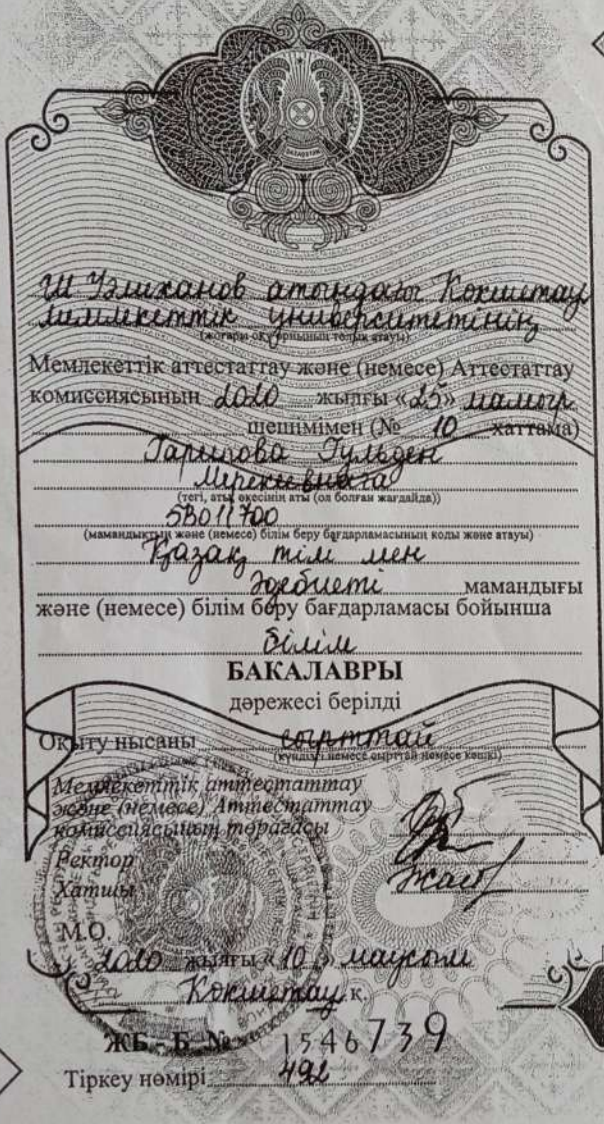 ҚАЗАҚСТАН
Ш Уәлиханов атындағы Көкшетау
мемлекеттік университетінің
(жоғары оқу орнының толық атауы)
Мемлекеттік аттестаттау және (немесе) Аттестаттау
комиссиясының 2020 жылғы «25» мамыр
шешімімен (№ 10 хаттама)
Гарипова Гульден
Мерекеевнаға
(тегі, аты, әкесінің аты (ол болған жағдайда))
5В011700
(мамандықтың және (немесе) білім беру бағдарламасының коды және атауы)
Қазақ тілі мен
әдебиеті мамандығы
және (немесе) білім беру бағдарламасы бойынша
білім
БАКАЛАВРЫ
дәрежесі берілді
Оқыту нысаны сырттай
(күндізгі немесе сырттай немесе кешкі)
Мемлекеттік аттестаттау
және (немесе) Аттестаттау
комиссиясының төрағасы
Ректор
Хатшы
М.О.
2020 жылғы «10» маусым
Көкшетау қ.
ЖБ - Б № 1546739
Тіркеу нөмірі 492